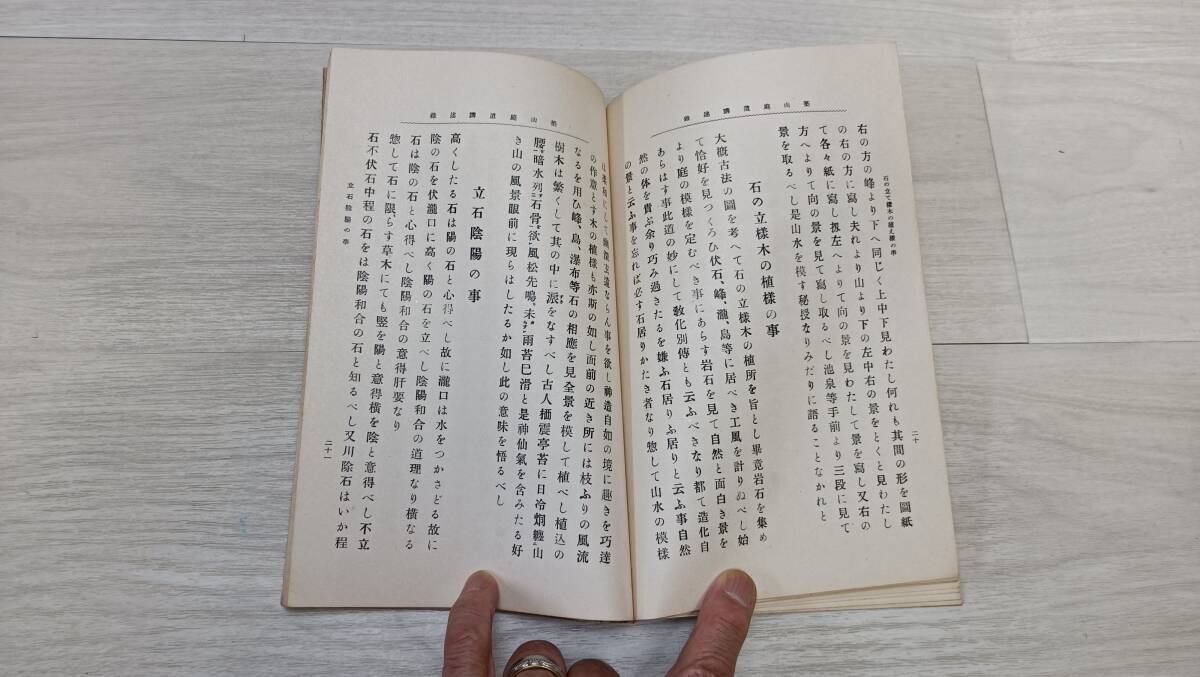 築山庭造講述錄
石の立て樣木の植え樣の事
右の方の峰より下へ同じく上中下見わたし何れも其間の形を圖紙
の右の方に寫し夫れより山より下の左中右の景をとくと見わたし
て各々紙に寫し扨左へよりて向の景を見わたして景を寫し又右の
方へよりて向の景を見て寫し取るべし池泉等手前より三段に見て
景を取るべし是山水を模す秘授なりみだりに語ることなかれと
石の立樣木の植樣の事
大槪古法の圖を考へて石の立樣木の植所を旨とし畢竟岩石を集め
て恰好を見つくろひ伏石、峰、瀧、島等に居べき工風を計りぬべし始
より庭の模樣を定むべき事にあらす岩石を見て自然と面白き景を
あらはす事此道の妙にして敎化別傳とも云ふべきなり都て造化自
然の体を貴ぶ余り巧み過きたるを嫌ふ石居りふ居りと云ふ事自然
の景と云ふ事を忘れば必す石居りかたき者なり惣して山水の模樣
二十
築山庭造講述錄
は柔和にして幽深玄遠ならん事を欲し神造自如の境に趣きを巧達
の作意とす木の植樣も亦斯の如し面前の近き所には枝ふりの風流
なるを用ひ峰、島、瀑布等石の相應を見全景を模して植べし植込の
樹木は繁くして其の中に派をなすべし古人揷震亭苔に日冷烟纏山
腰暗水列石骨欲風松先鳴未雨苔巳滑と是神仙氣を含みたる好
き山の風景眼前に現らはしたるか如し此の意味を悟るべし
立石陰陽の事
高くしたる石は陽の石と心得べし故に瀧口は水をつかさどる故に
陰の石を伏瀧口に高く陽の石を立べし陰陽和合の道理なり橫なる
石は陰の石と心得べし陰陽和合の意得肝要なり
惣して石に限らす草木にても竪を陽と意得橫を陰と意得べし不立
石不伏石中程の石をは陰陽和合の石と知るべし又川除石はいか程
立石陰陽の事
二十一